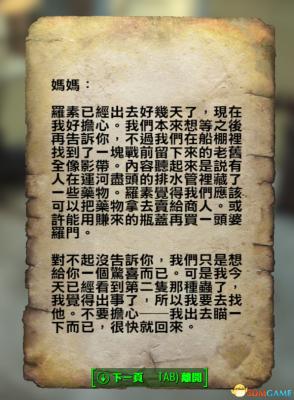 媽媽：
羅素已經出去好幾天了，現在
我好擔心。我們本來想等之後
再告訴你，不過我們在船棚裡
找到了一塊戰前留下來的老舊
全像影帶。內容聽起來是說有
人在運河盡頭的排水管裡藏了
一些藥物。羅素覺得我們應該
可以把藥物拿去賣給商人。或
許能用賺來的瓶蓋再買一頭婆
羅門。
對不起沒告訴你，我們只是想
給你一個驚喜而已。可是我今
天已經看到第二隻那種蟲了，
我覺得出事了，所以我要去找
他。不要擔心——我出去瞄一
下而已，很快就回來。
下一頁 TAB) 離開
3DMGAME